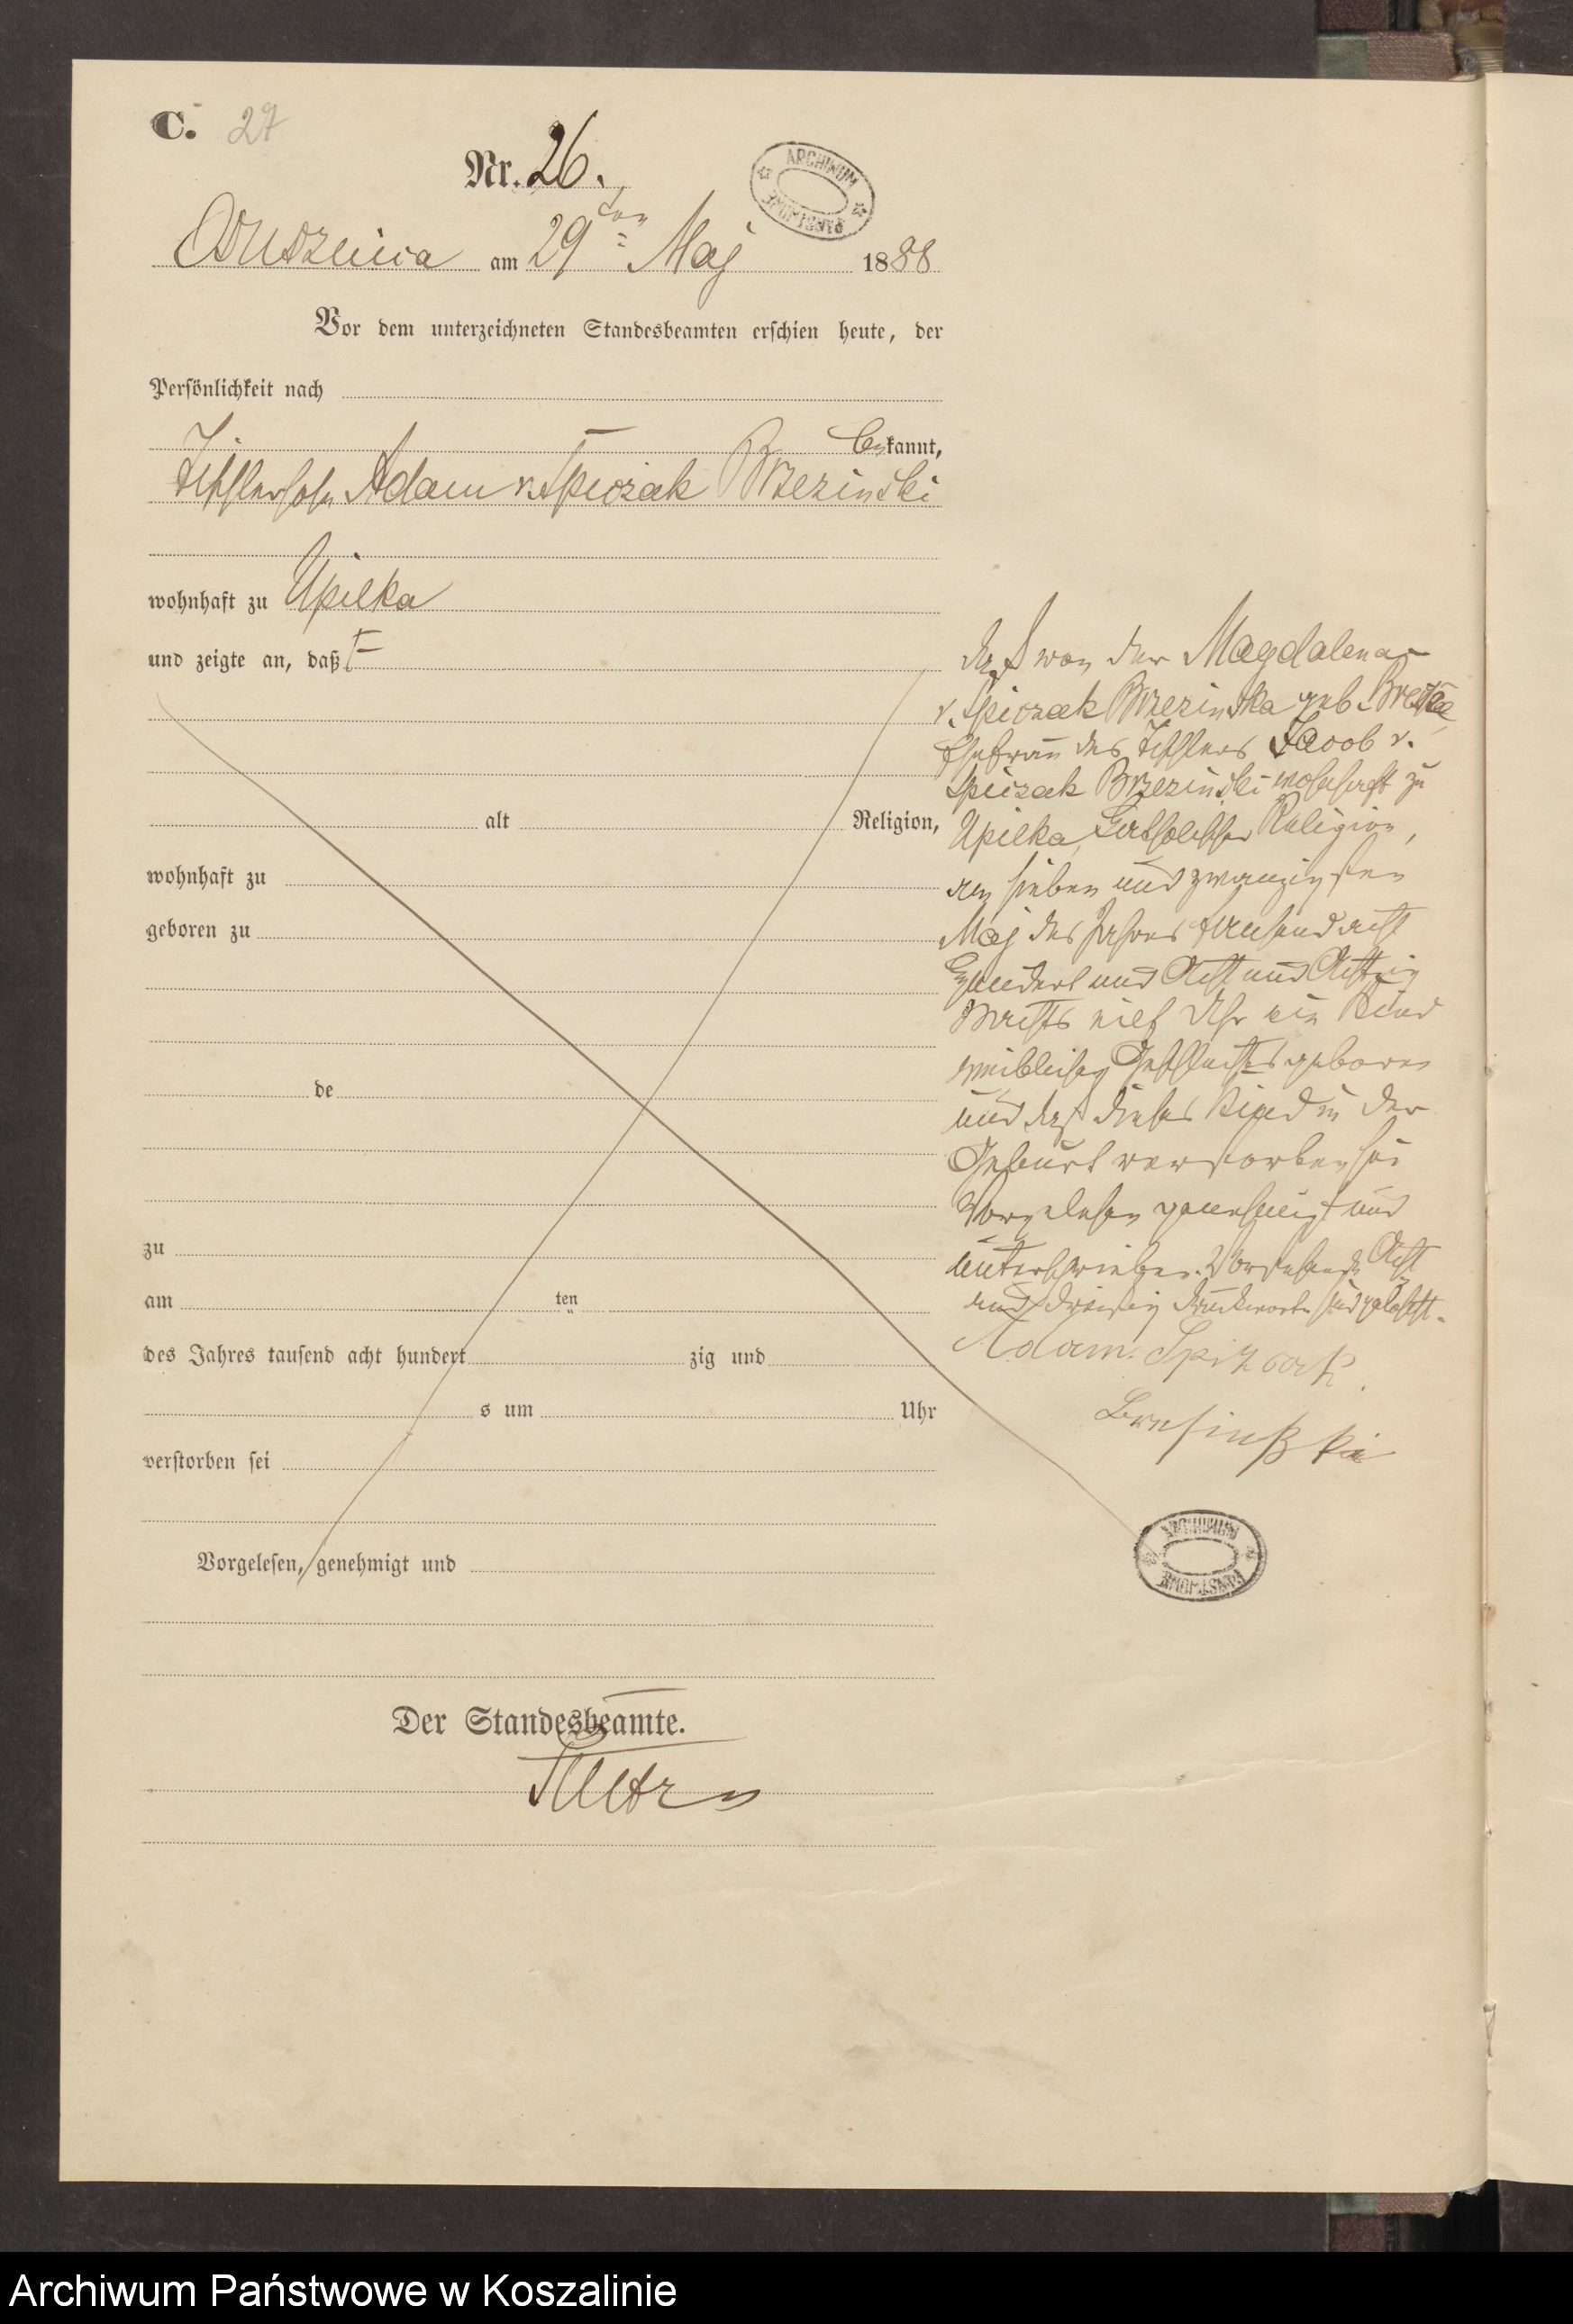 C. 27
Nr. 26.
ARCHIWUM PAŃSTWOWE
am 29ten Maj 1888
Vor dem unterzeichneten Standesbeamten erschien heute, der
Persönlichkeit nach
bekannt,
Adam v. Spiczak Brzezinski
wohnhaft zu Upilka
und zeigte an, daß
alt Religion,
wohnhaft zu
geboren zu
de
zu
am ten
des Jahres tausend acht hundert zig und
s um Uhr
verstorben sei
Vorgelesen, genehmigt und
Der Standesbeamte.
daß von der Magdalena
v. Spiczak Brzezinska geb.
Ehefrau des Tischlers Jacob v.
Spiczak Brzezinski wohnhaft zu
Upilka, katholischer Religion,
am sieben und zwanzigsten
Maj des Jahres tausend acht
hundert und Acht und Achtzig
Nachts elf Uhr ein Kind
weiblichen Geschlechts geboren
und daß dieses Kind in der
Geburt verstorben sei
Vorgelesen genehmigt und
unterschrieben. Vorstehende Acht
und dreißig Druckworte sind gelöscht.
Adam Spitzack
Bresinßki
ARCHIWUM PAŃSTWOWE
Archiwum Państwowe w Koszalinie